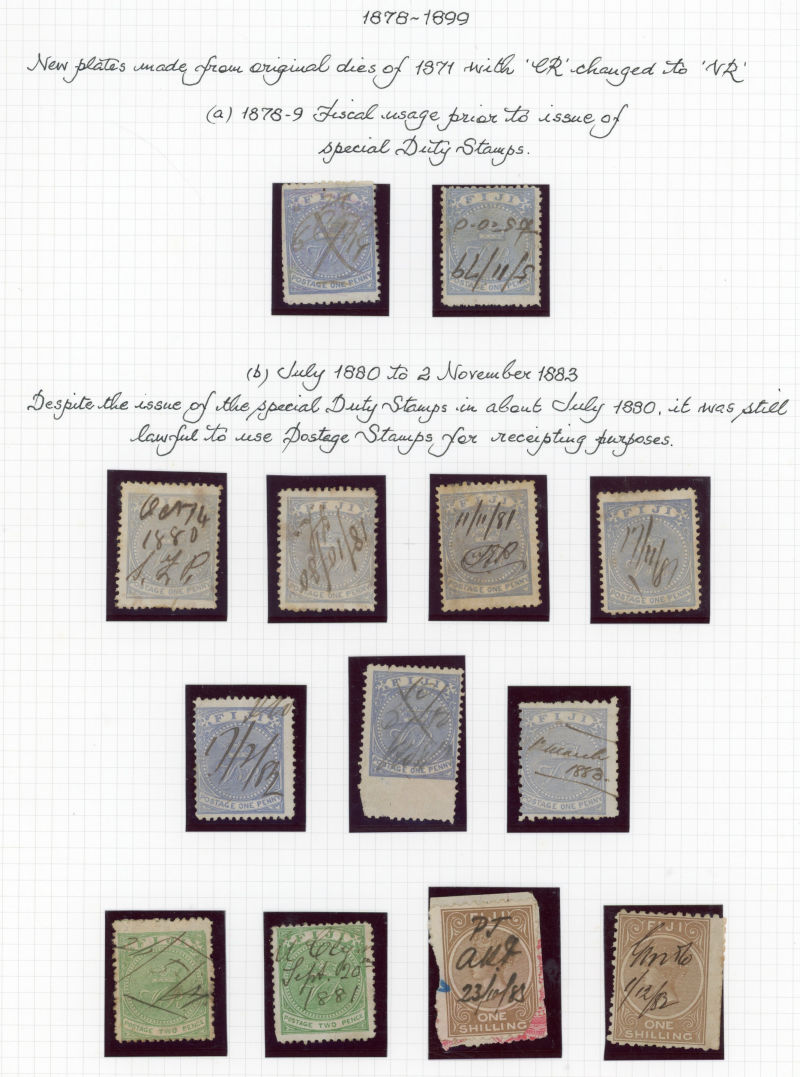 1878-1899
New plates made from original dies of 1871 with 'CR' changed to 'VR'
(a) 1878-9 Fiscal usage prior to issue of
special Duty Stamps.
FIJI
POSTAGE ONE PENNY
FIJI
5/11/79
POSTAGE ONE PENNY
(b) July 1880 to 2 November 1883
Despite the issue of the special Duty Stamps in about July 1880, it was still
lawful to use Postage Stamps for receipting purposes.
Oct 14
1880
POSTAGE ONE PENNY
18/10/80
POSTAGE ONE PENNY
FIJI
11/11/81
POSTAGE ONE PENNY
FIJI
POSTAGE ONE PENNY
FIJI
17/2/82
POSTAGE ONE PENNY
FIJI
POSTAGE ONE PENNY
FIJI
1st March
1883.
POSTAGE ONE PENNY
FIJI
POSTAGE TWO PENCE
FIJI
Sept 20
1881
POSTAGE TWO PENCE
FIJI
PJ
23/10/83
ONE
SHILLING
FIJI
1/12/82
ONE
SHILLING